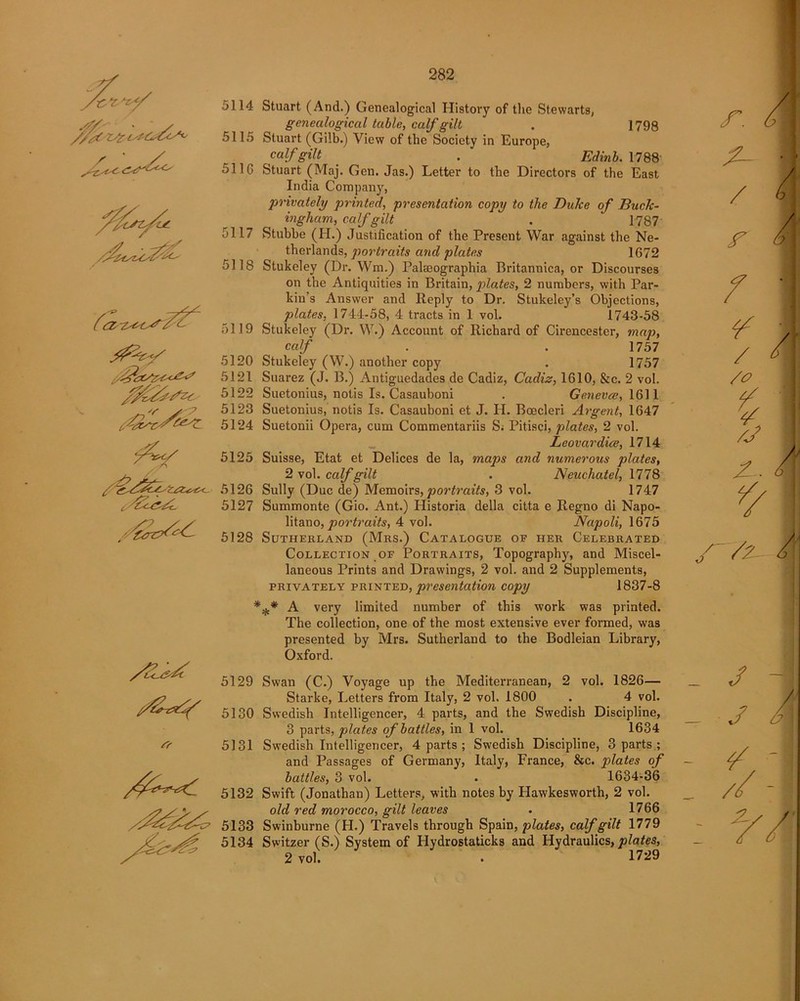 282
5114 Stuart (And.) Genealogical History of the Stewarts,
genealogical table, calf gilt . 1798
5115 Stuart (Gilb.) View of the Society in Europe,
calf gilt . Edinb. 1788
5116 Stuart (Maj. Gen. Jas.) Letter to the Directors of the East
India Company,
privately printed, presentation copy to the Duke of Buck-
ingham, calf gilt . 1787
5117 Stubbe (H.) Justification of the Present War against the Ne-
therlands, portraits and plates 1672
5118 Stukeley (Dr. Wm.) Palæographia Britannica, or Discourses
on the Antiquities in Britain, plates, 2 numbers, with Par-
kin's Answer and Reply to Dr. Stukeley's Objections,
plates, 1744-58, 4 tracts in 1 vol. 1743-58
5119 Stukeley (Dr. W.) Account of Richard of Cirencester, map,
calf . . 1757
5120 Stukeley (W.) another copy . 1757
5121 Suarez (J. B.) Antiguedades de Cadiz, Cadiz, 1610, &c. 2 vol.
5122 Suetonius, notis Is. Casauboni . Genevæ, 1611
5123 Suetonius, notis Is. Casauboni et J. H. Bœcleri Argent, 1647
5124 Suetonii Opera, cum Commentariis S. Pitisci, plates, 2 vol.
Leovardiæ, 1714
5125 Suisse, Etat et Delices de la, maps and numerous plates,
2 vol. calf gilt . Neuchatel, 1778
5126 Sully (Duc de) Memoirs, portraits, 3 vol. 1747
5127 Summonte (Gio. Ant.) Historia della citta e Regno di Napo-
litano, portraits, 4 vol. Napoli, 1675
5128 Sutherland (Mrs.) Catalogue of her Celebrated
Collection of Portraits, Topography, and Miscel-
laneous Prints and Drawings, 2 vol. and 2 Supplements,
privately printed, presentation copy 1837-8
*** A very limited number of this work was printed.
The collection, one of the most extensive ever formed, was
presented by Mrs. Sutherland to the Bodleian Library,
Oxford.
5129 Swan (C.) Voyage up the Mediterranean, 2 vol. 1826—
Starke, Letters from Italy, 2 vol. 1800 . 4 vol.
5130 Swedish Intelligencer, 4 parts, and the Swedish Discipline,
3 parts, plates of battles, in 1 vol. 1634
5131 Swedish Intelligencer, 4 parts; Swedish Discipline, 3 parts;
and Passages of Germany, Italy, France, &c. plates of
battles, 3 vol. . 1634-36
5132 Swift (Jonathan) Letters, with notes by Hawkesworth, 2 vol.
old red morocco, gilt leaves . 1766
5133 Swinburne (H.) Travels through Spain, plates, calf gilt 1779
5134 Switzer (S.) System of Hydrostaticks and Hydraulics, plates,
2 vol. . 1729